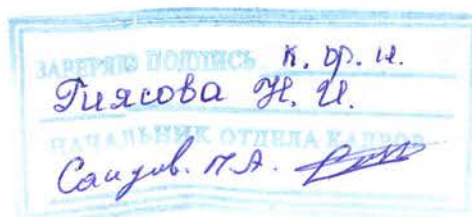 ЗАВЕРЯЮ ПОДПИСЬ к.ф.н.
Гиясова Н. И.
НАЧАЛЬНИК ОТДЕЛА КАДРОВ
Саидов. М.А.